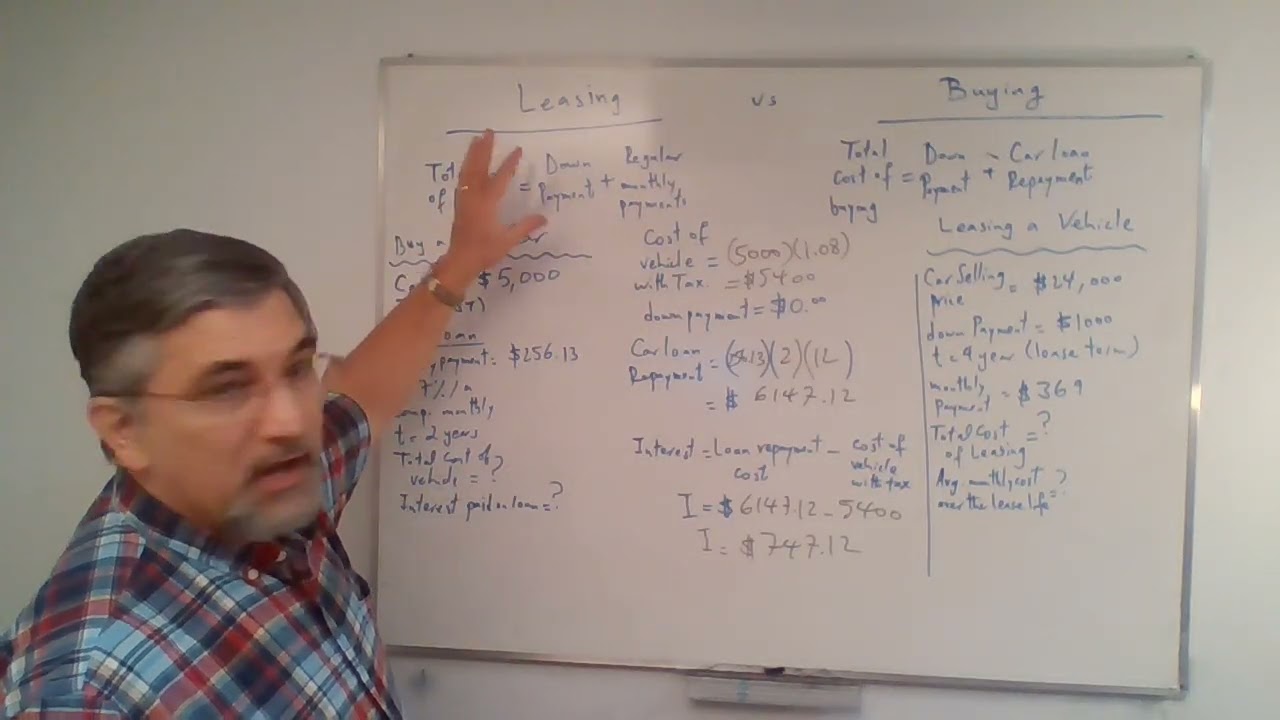 Leasing vs Buying
Down Regular
= Payment + monthly
payments
Total Down Car loan
cost of = Payment + Repayment
buying
Buy a
$5,000
payment = $256.13
7%/a
monthly
t = 2 years
Total Cost of
vehicle = ?
Interest paid on loan = ?
Cost of
vehicle = (5000)(1.08)
with Tax. = $5400
down payment = $0.00
Car loan
Repayment = ( 13)(2)(12)
= $ 6147.12
Interest = Loan repayment - cost of
cost vehicle
with tax
I = $6147.12 - 5400
I = $747.12
Leasing a Vehicle
Car Selling
price = $24,000
down Payment = $1000
t = 4 year (lease term)
monthly
payment = $369
Total Cost
of Leasing = ?
Avg. monthly cost
over the lease life = ?